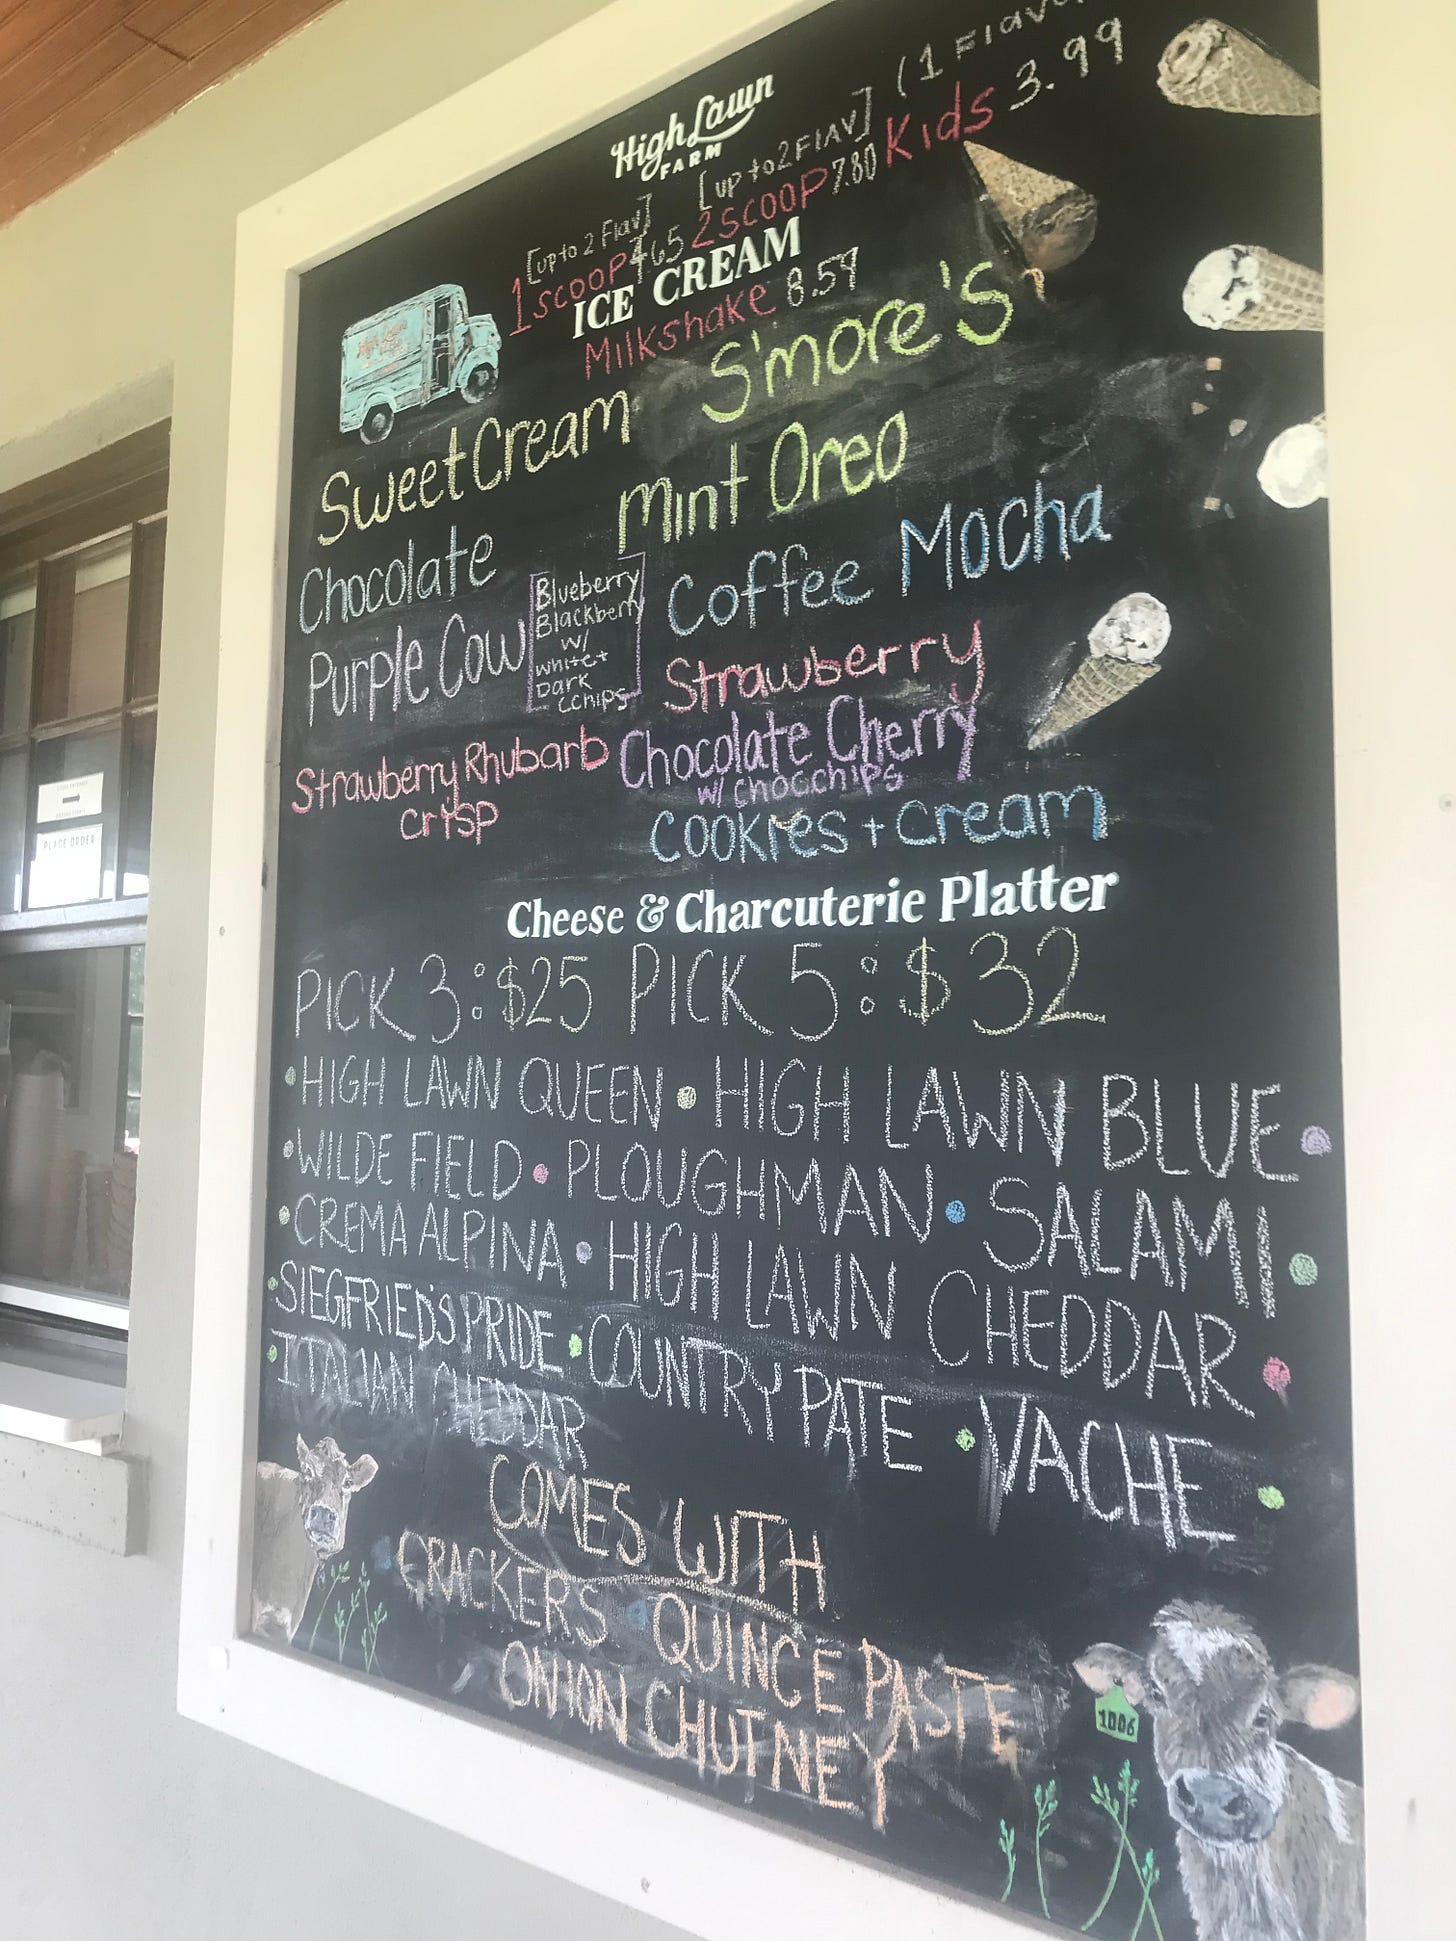 High Lawn
FARM
[up to 2 Flav] [up to 2 FlAV] (1 Flavo
1 SCOOP 4.65 2 SCOOP 7.80 Kids 3.99
ICE CREAM
Milkshake 8.59
Sweet Cream S'more's
Mint Oreo
Chocolate Coffee Mocha
Purple Cow [Blueberry
Blackberry
w/
white +
Dark
cchips]
Strawberry
Strawberry Rhubarb
crisp
Chocolate Cherry
w/ chocchips
Cookies + Cream
Cheese & Charcuterie Platter
PICK 3: $25 PICK 5: $32
• HIGH LAWN QUEEN • HIGH LAWN BLUE •
• WILDE FIELD • PLOUGHMAN • SALAMI •
• CREMA ALPINA • HIGH LAWN CHEDDAR •
• SIEGFRIED'S PRIDE • COUNTRY PATE • VACHE •
• ITALIAN CHEDDAR
COMES WITH
• CRACKERS • QUINCE PASTE
ONION CHUTNEY
1006
PLACE ORDER